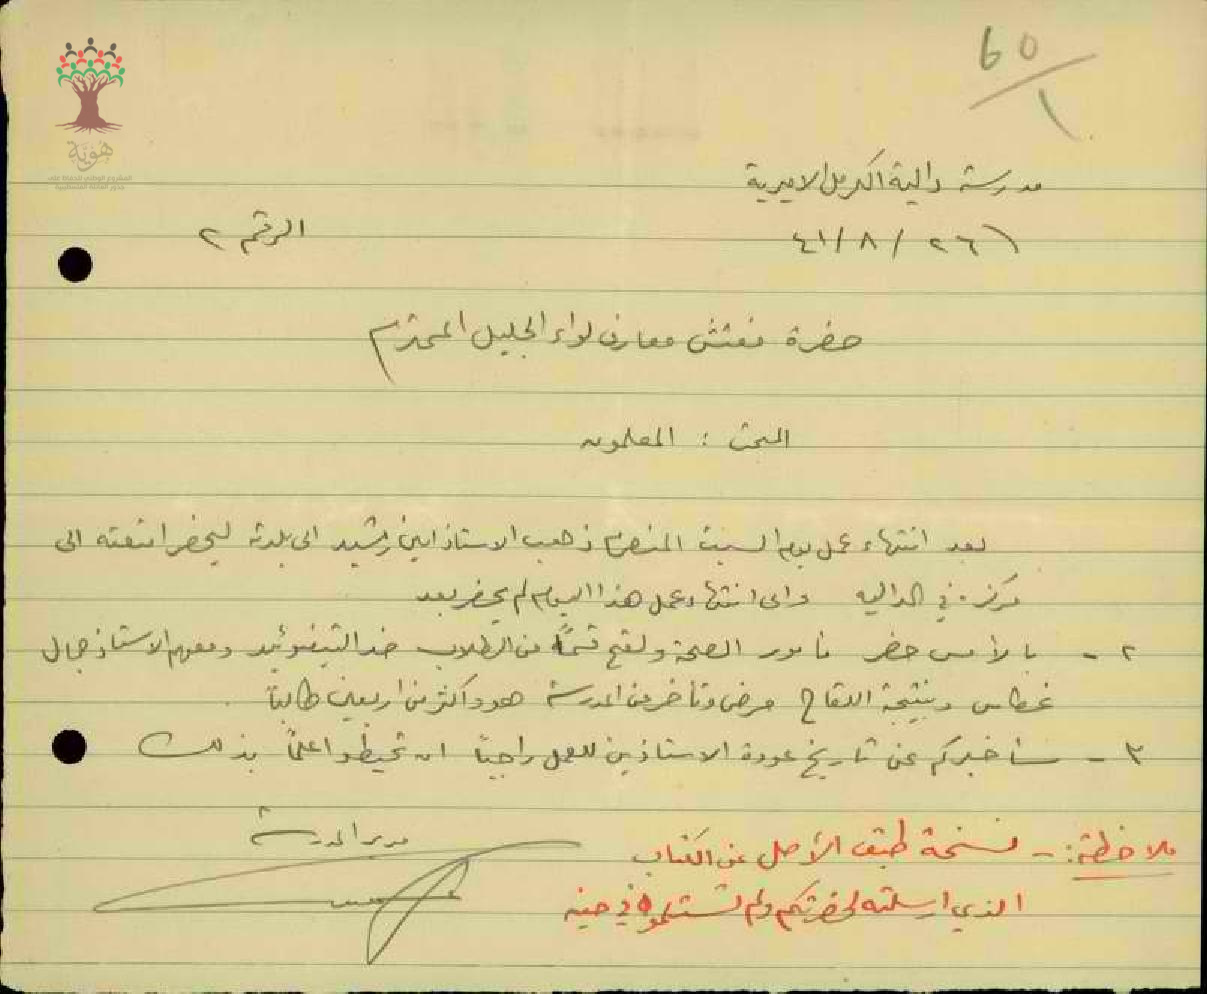 60
١
هوية
المشروع الوطني للحفاظ على
جذور العائلة الفلسطينية
مدرسة دالية الكرمل الاميرية
٢٦ / ٨ / ٤١
الرقم ٢
حضرة مفتش معارف لواء الجليل المحترم
المبحث : المعلمون
بعد انتهاء عمل يوم السبت المنصرم ذهب الاستاذ امين رشيد الى بلدته ليحضر امتعته الى
مركزه في الداليه والى انتهاء عمل هذا اليوم لم يحضر بعد
٢ - بالأمس حضر مأمور الصحة ولقح قسمًا من الطلاب ضد التيفوئيد ومعهم الاستاذ جمال
غطاس وبنتيجة اللقاح مرض وتأخر عن المدرسة هو واكثر من اربعين طالبًا .
٣ - سأخبركم عن تاريخ عودة الاستاذين للعمل راجيًا ان تحيطوا علمًا بذلك
مدير المدرسة
ملاحظة :- نسخة طبق الأصل عن الكتاب
الذي ارسلته لحضرتكم ولم تستلموه في حينه